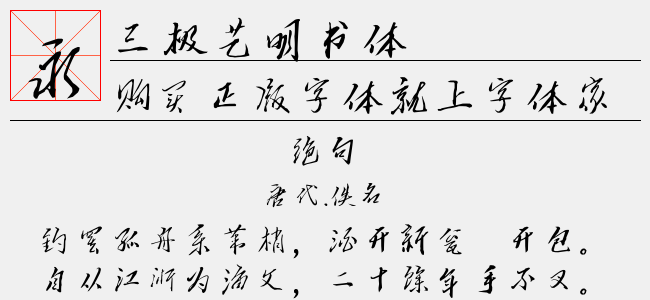 永
三极艺明书体
购买正版字体就上字体家
绝句
唐代.佚名
钓罢孤舟系苇梢，酒开新瓮 开包。
自从江浙为渔父，二十馀年手不叉。